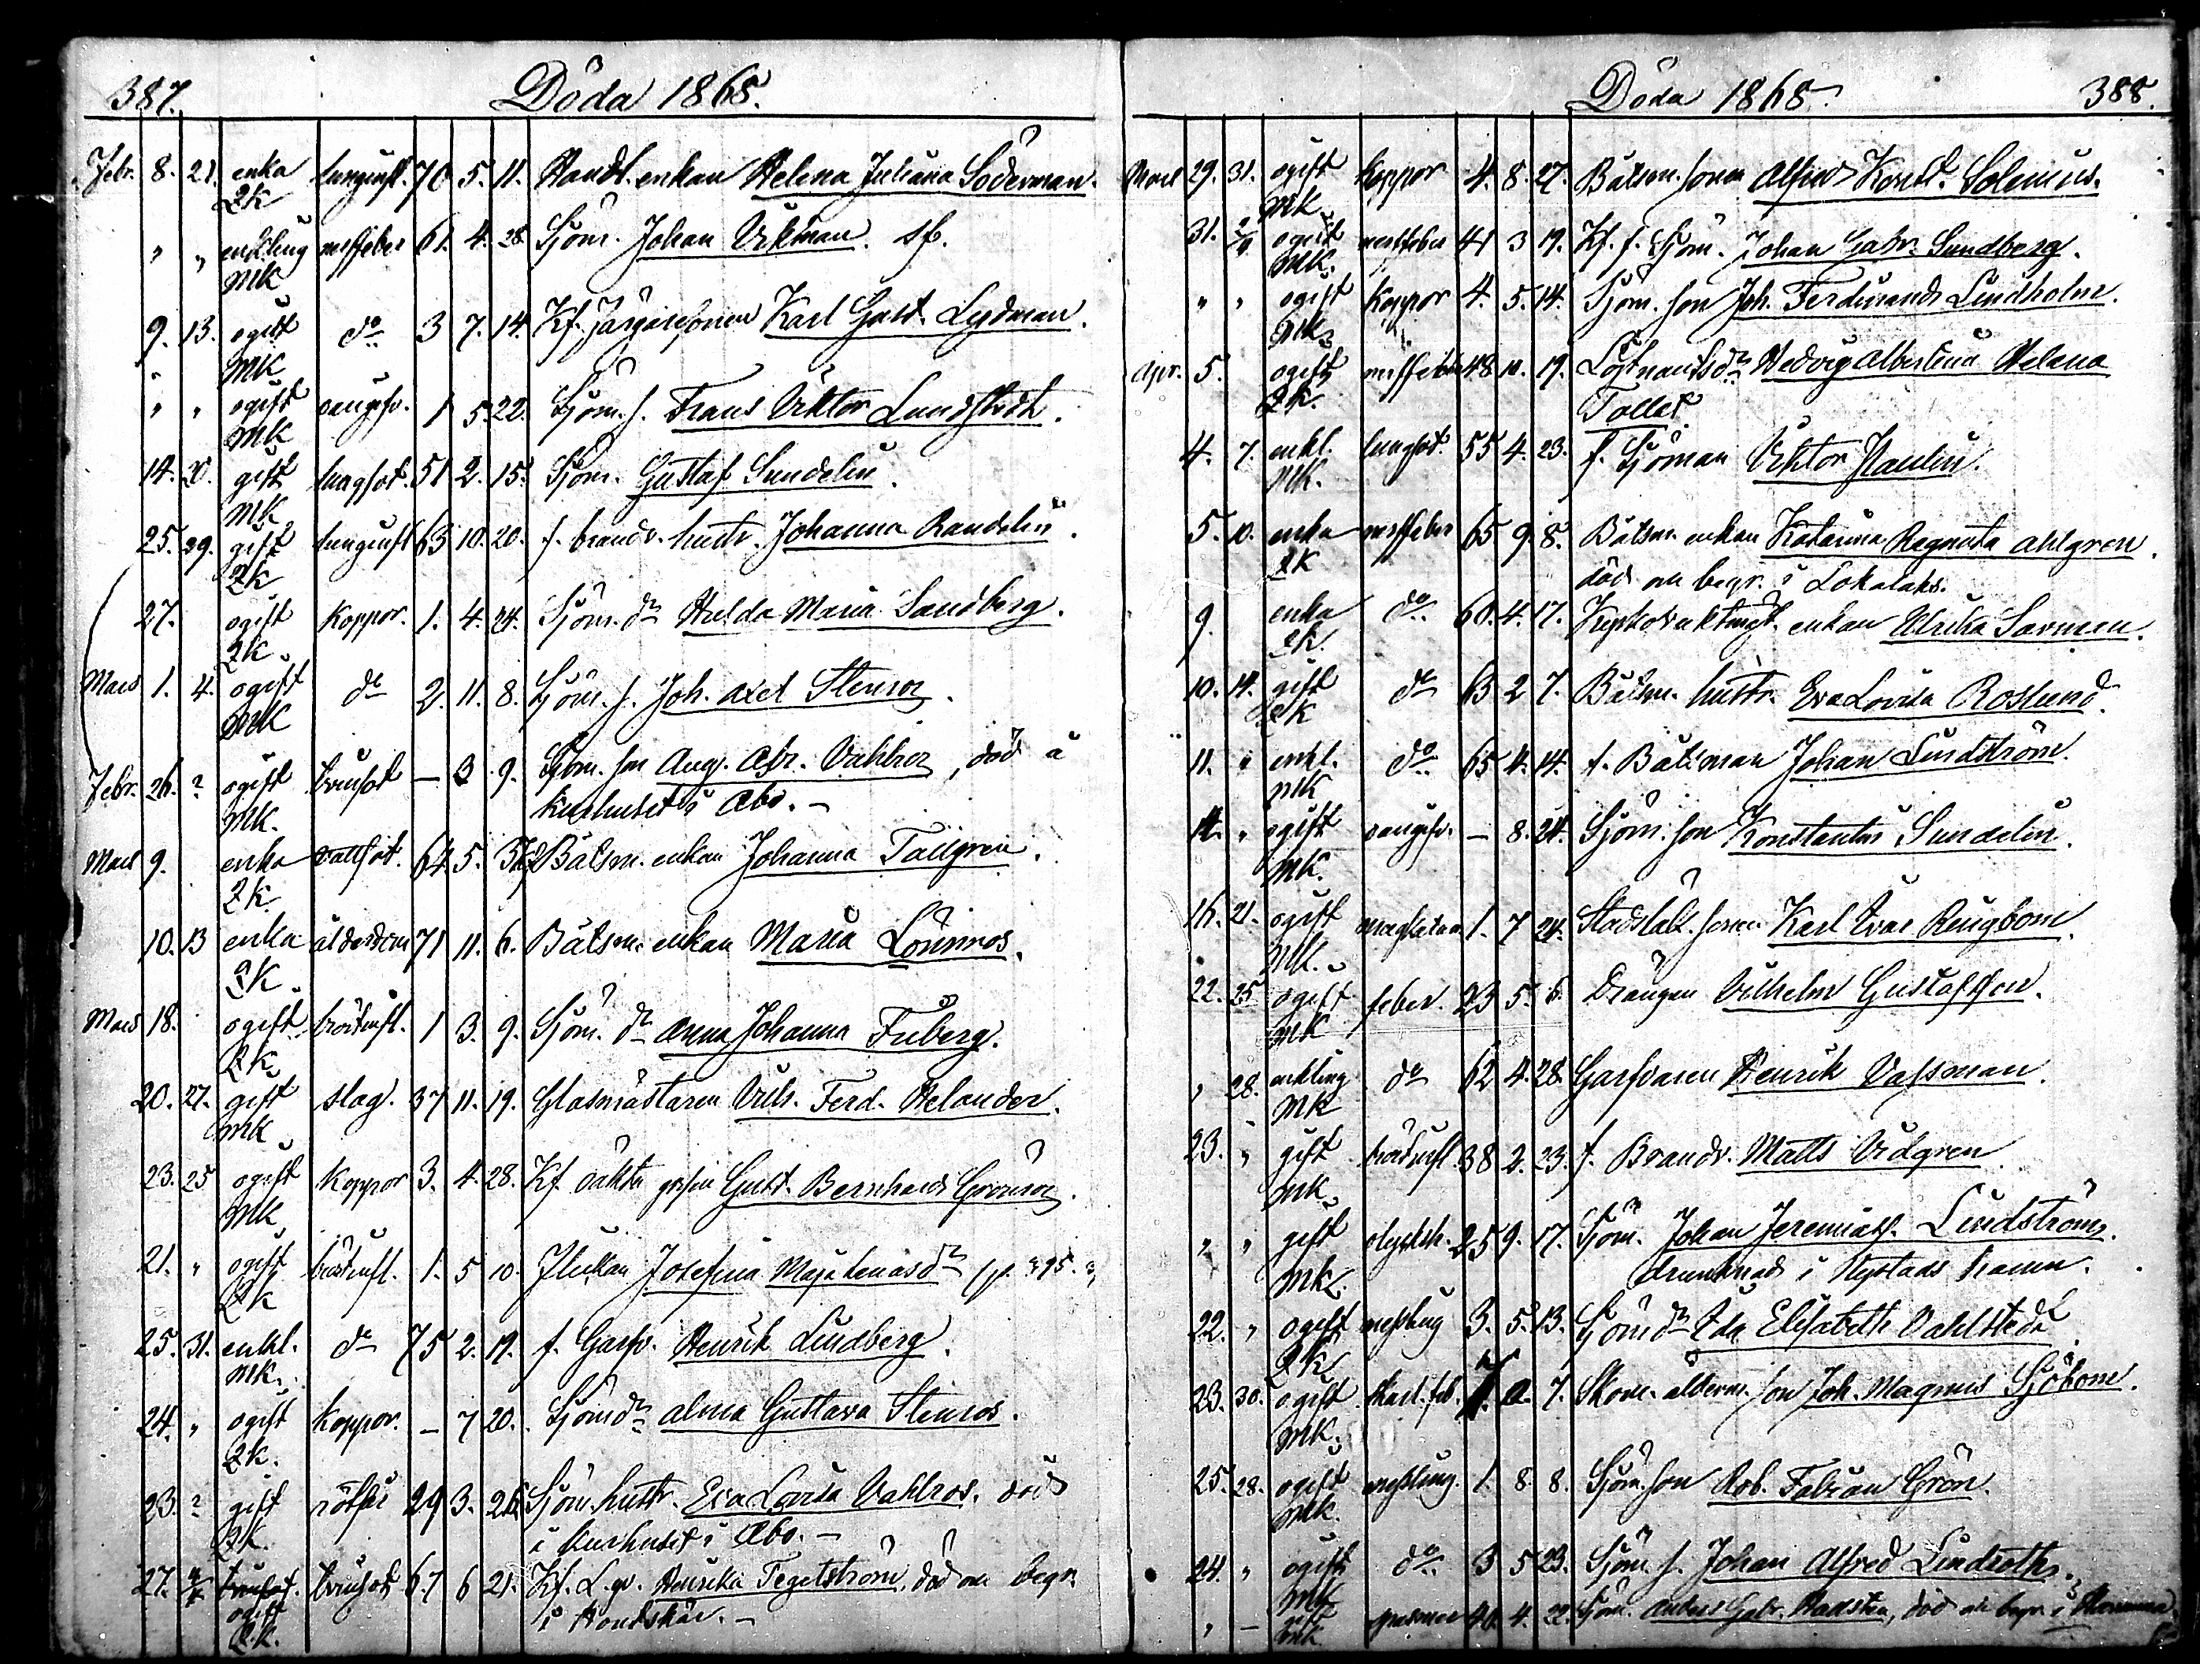 387. Döda 1868.
Febr. 8. 21. enka lunginfl. 70 5. 11. Handl. enkan Helena Juliana Söderman.
QK
" " enkling nerffeber 61. 4. 28. Sjöm. Johan Vikman. sf.
MK
9. 13. ogift do 3 7. 14. Kf. Karl Gust. Lydman.
MK
" " ogift 1 5. 22. Sjöm. s. Frans Viktor Lundstedt.
MK
14. 20. gift lungsot. 51 2. 15. Sjöm. Gustaf Sundelin.
MK
25. 29. gift lunginfl 63 10. 20. f. brandv. hustr. Johanna Randelin.
QK
27. ogift koppor. 1. 4. 24. Sjöm. dr Hulda Maria Sandberg.
QK
Mars 1. 4. ogift do 2. 11. 8. Sjöm. s. Joh. Axel Stenroos.
MK
Febr. 26. ? ogift trinsot — 3 9. Sjöm. son Aug. Abr. Vahlros, död å
MK. kurhuset i Åbo. —
Mars 9. enka vattsot. 64. 5. Båtsm. enkan Johanna Tallgren.
QK.
10. 13 enka ålderdom 71 11. 6. Båtsm. enkan Maria Lönnros.
QK
Mars 18. ogift bröstinfl. 1 3. 9. Sjöm. dr Anna Johanna Friberg.
QK
20. 27. gift slag. 37 11. 19. Glasmästaren Vilh. Ferd. Helander.
MK
23. 25 ogift koppor 3. 4. 28. Kf. oäkta gossen Gust. Bernhard Grönroos.
MK
21. " ogift bröstinfl. 1. 5 10. Flickan Josefina Maja Lenasdr (p. 395.)
QK
25. 31. enkl. do 75 2. 19. f. Garfv. Henrik Lindberg.
MK.
24. " ogift koppor. — 7 20. Sjöm dr Alma Gustava Stenros.
QK.
23. ? gift rötfeb 29 3. 26. Sjöm. hustr. Eva Lovisa Vahlros. död
QK. i kurhuset i Åbo. —
27. trinsot. trinsot 67 6 21. Kf. L. gv. Henrika Tegelström, död och begr.
ogift i Kondskär. —
QK.
Döda 1868. 388.
Mars 29. 31. ogift koppor 4. 8. 27. Båtsm. sonen Alfred Konst. Solenius.
MK
31. ogift nerffeber 41 3 19. Kf. f. Sjöm. Johan Gabr. Sundberg.
MK.
" " ogift koppor 4. 5. 14. Sjöm. son Joh. Ferdinand Lindholm.
MK
Apr. 5. ogift nerffeber 48 10. 19. Löjtnantsdr Hedvig Albertina Helena
QK. Tollet
4. 7. enkl. lungsot. 55 4. 23. f. Sjöman Viktor Paulin.
MK.
5. 10. enka nerffeber 65 9. 8. Båtsm. enkan Katarina Regnata Ahlgren.
QK död och begr. i Lokalaks.
9. enka do 60. 4. 17. enkan Ulrika Sarmen.
QK.
10. 14. gift do 63 2 7. Båtsm. hustr. Eva Lovisa Roslund.
QK
11. " enkl. do 65 4. 14. f. Båtsman Johan Lindström.
MK
12. " ogift — 8. 24. Sjöm. son Konstantin Sundelin.
MK.
16. 21. ogift 1. 7 24. Karl Ivar Ringbom.
MK.
22. 25 ogift feber. 23 5. 6. Drängen Vilhelm Gustafsson.
MK
" 28. enkling do 62 4. 28. Garfvaren Henrik Vassman.
MK
23. " gift bröstinfl. 38 2. 23. f. Brandv. Matts Vidgren
MK.
" " gift olyckh. 25 9. 17. Sjöm. Johan Jeremiass. Lindström,
MK. drunknad i Nystads hamn.
22. " ogift messling 3. 5. 13. Sjöm dr Ida Elisabeth Vahlstedt
QK
23. 30. ogift skarl. feb. 7. Skom. ålderm. son Joh. Magnus Sjöbom.
MK.
25. 28. ogift messling. 1. 8 8. Sjöm. son Rob. Fabian Grön.
MK.
24. " ogift do 3 5 23. Sjöm. s. Johan Alfred Lindroth.
MK
" — gift 40. 4. 22. Sjöm. Anders Gabr. död och begr. i
MK